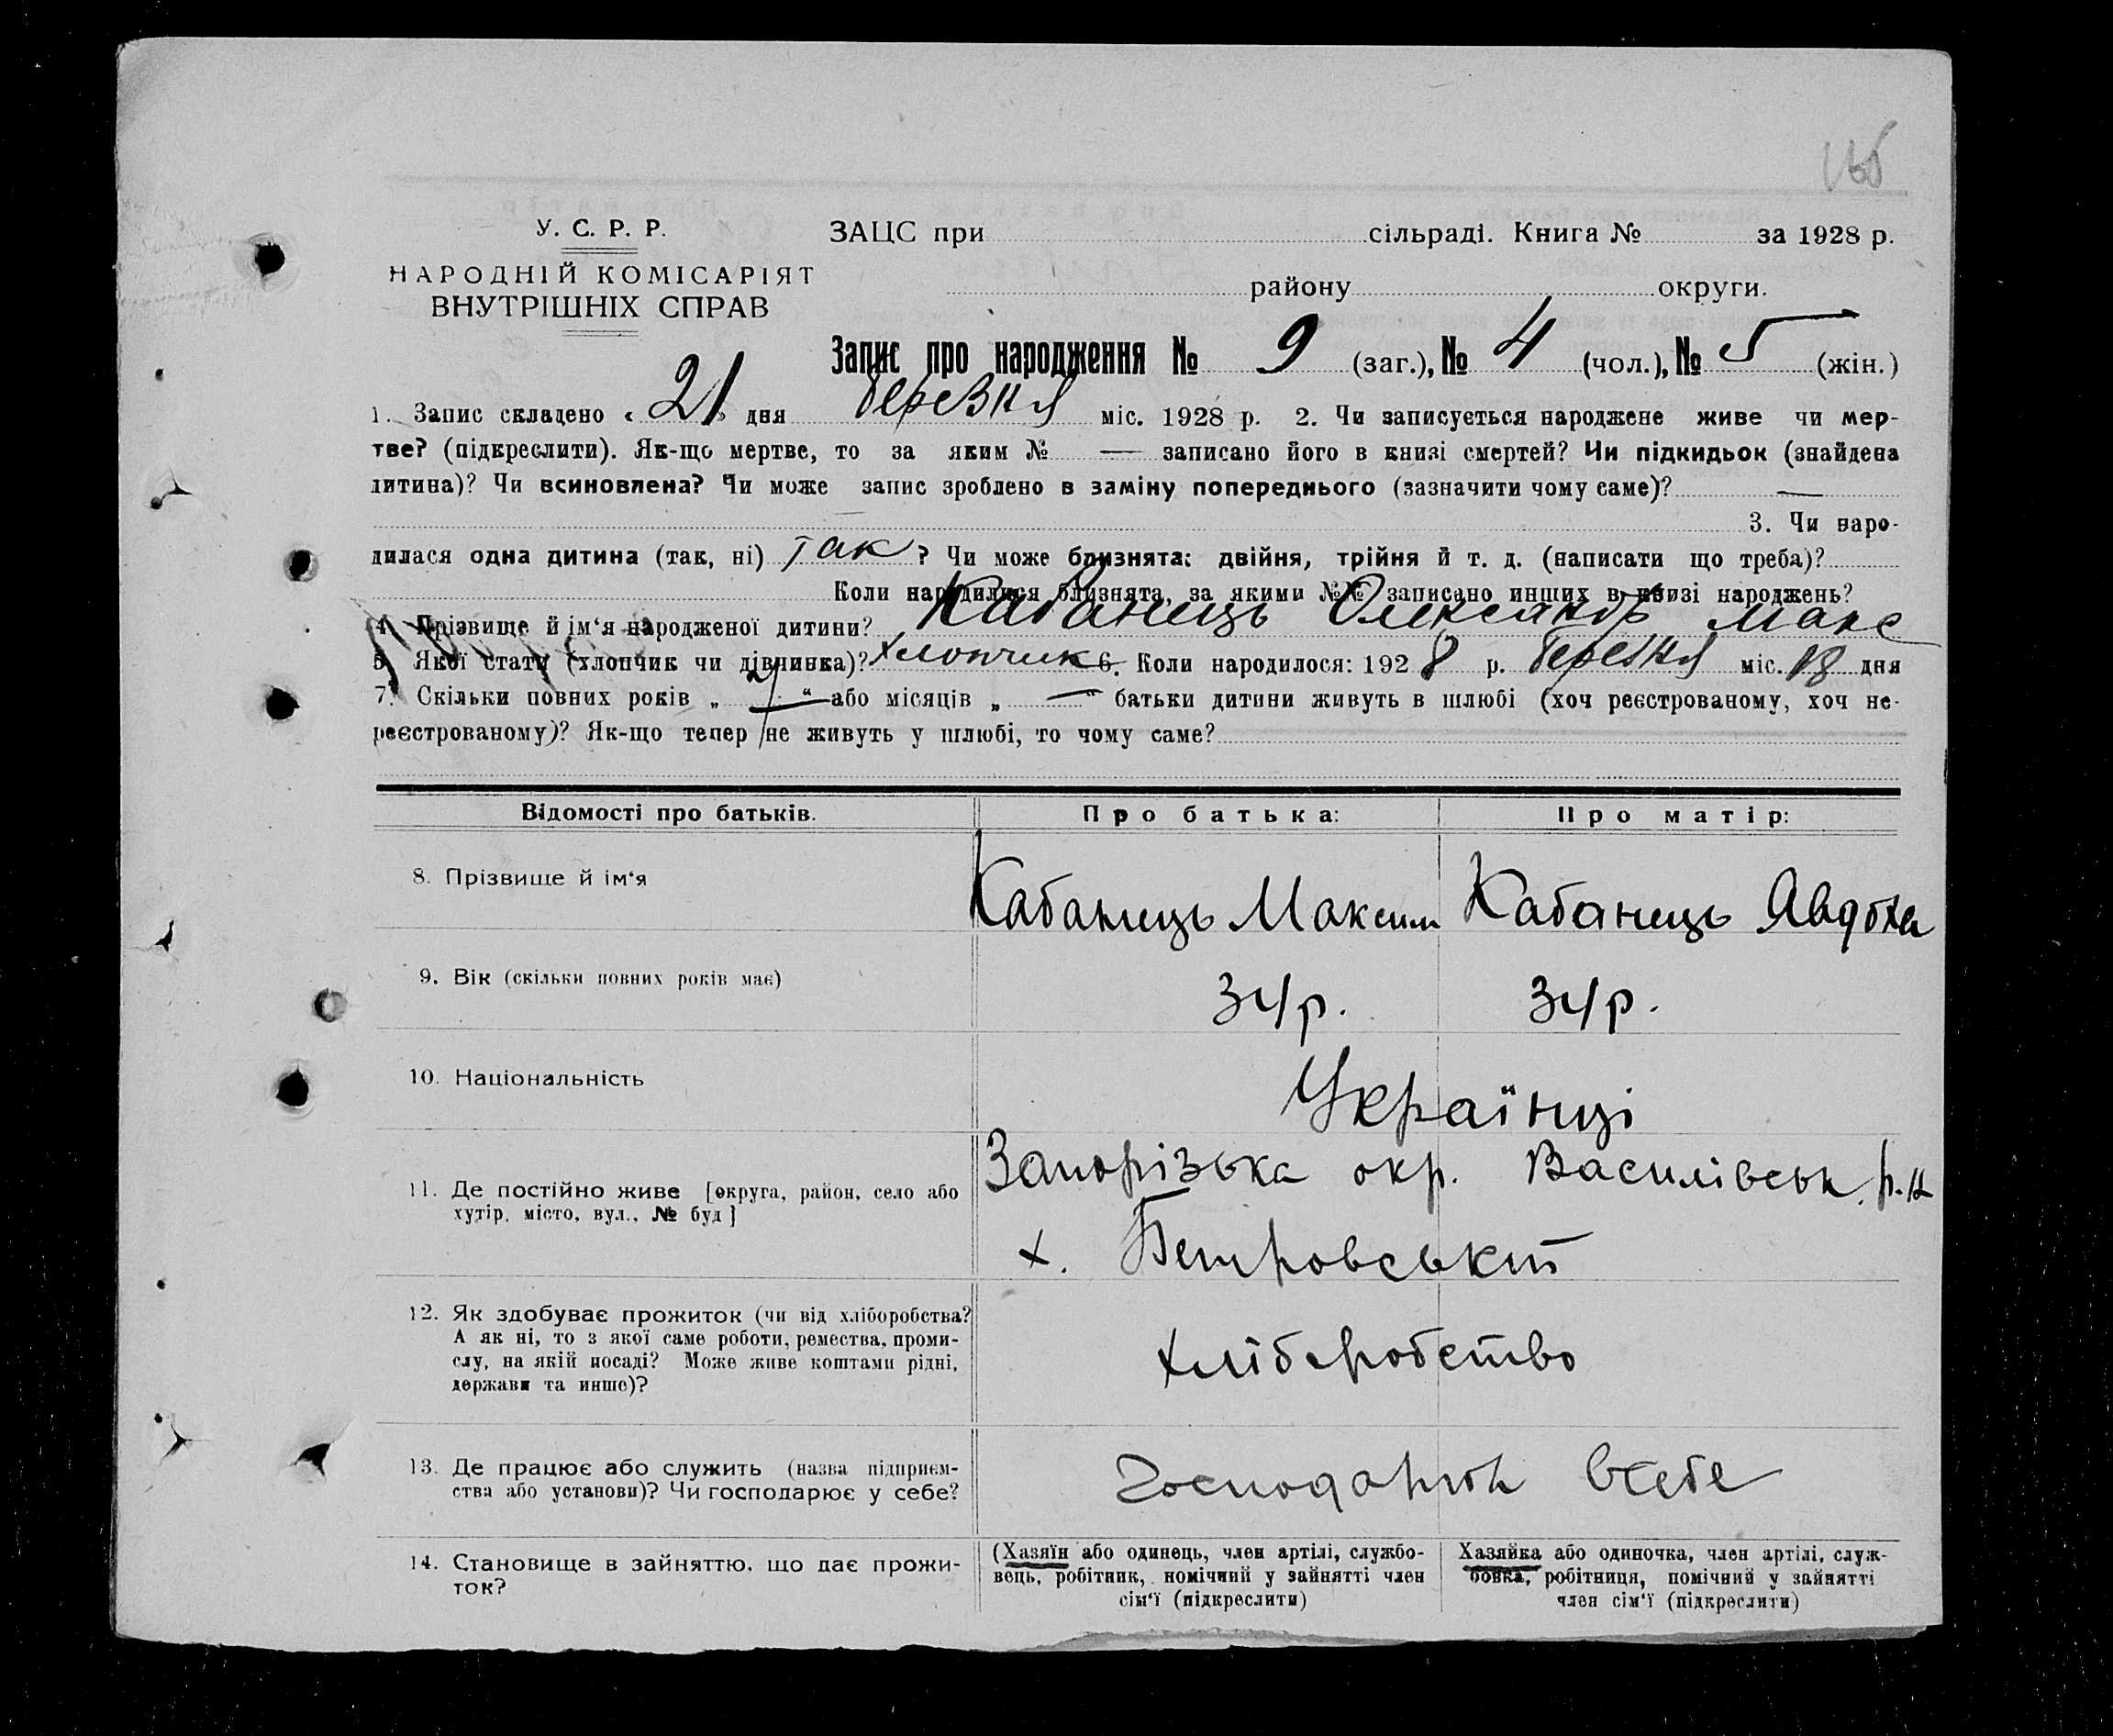 У. С. Р. Р.
НАРОДНІЙ КОМІСАРІЯТ
ВНУТРІШНІХ СПРАВ
ЗАЦС при сільраді. Книга № за 1928 р.
району округи.
Запис про народження № 9 (заг.), № 4 (чол.), № 5 (жін.)
1. Запис складено « 21 » дня березня міс. 1928 р. 2. Чи записується народжене живе чи мер-
тве? (підкреслити). Як-що мертве, то за яким № — записано його в книзі смертей? Чи підкидьок (знайдена
дитина)? Чи всиновлена? Чи може запис зроблено в заміну попереднього (зазначити чому саме)? —
3. Чи наро-
дилася одна дитина (так, ні) так ? Чи може близнята: двійня, трійня й т. д. (написати що треба)?
Коли народилися близнята, за якими №№ записано инших в книзі народжень?
4. Прізвище й ім‘я народженої дитини? Кабанець Олександр Макс
5. Якої стати (хлопчик чи дівчинка)? хлопчик 6. Коли народилося: 1928 р. березня міс. 18 дня
7. Скільки повних років „ “ або місяців „ — “ батьки дитини живуть в шлюбі (хоч реєстрованому, хоч не-
реєстрованому)? Як-що тепер не живуть у шлюбі, то чому саме?
Відомості про батьків. Про батька: Про матір:
8. Прізвище й ім‘я Кабанець Максим Кабанець Явдоха
9. Вік (скільки повних років має) 34р. 34р.
10. Національність Українці
11. Де постійно живе [округа, район, село або
хутір, місто, вул., № буд]
Запорізька окр. Василівськ. р.н
х. Петровський
12. Як здобуває прожиток (чи від хліборобства?
А як ні, то з якої саме роботи, ремества, проми-
слу, на якій посаді? Може живе коштами рідні,
держави та инше)?
хліборобство
13. Де працює або служить (назва підприєм-
ства або установи)? Чи господарює у себе?
Господарюють в себе
14. Становище в зайняттю, що дає прожи-
ток?
(Хазяїн або одинець, член артілі, службо-
вець, робітник, помічний у зайнятті член
сім‘ї (підкреслити)
Хазяйка або одиночка, член артілі, служ-
бовка, робітниця, помічний у зайнятті
член сім‘ї (підкреслити)